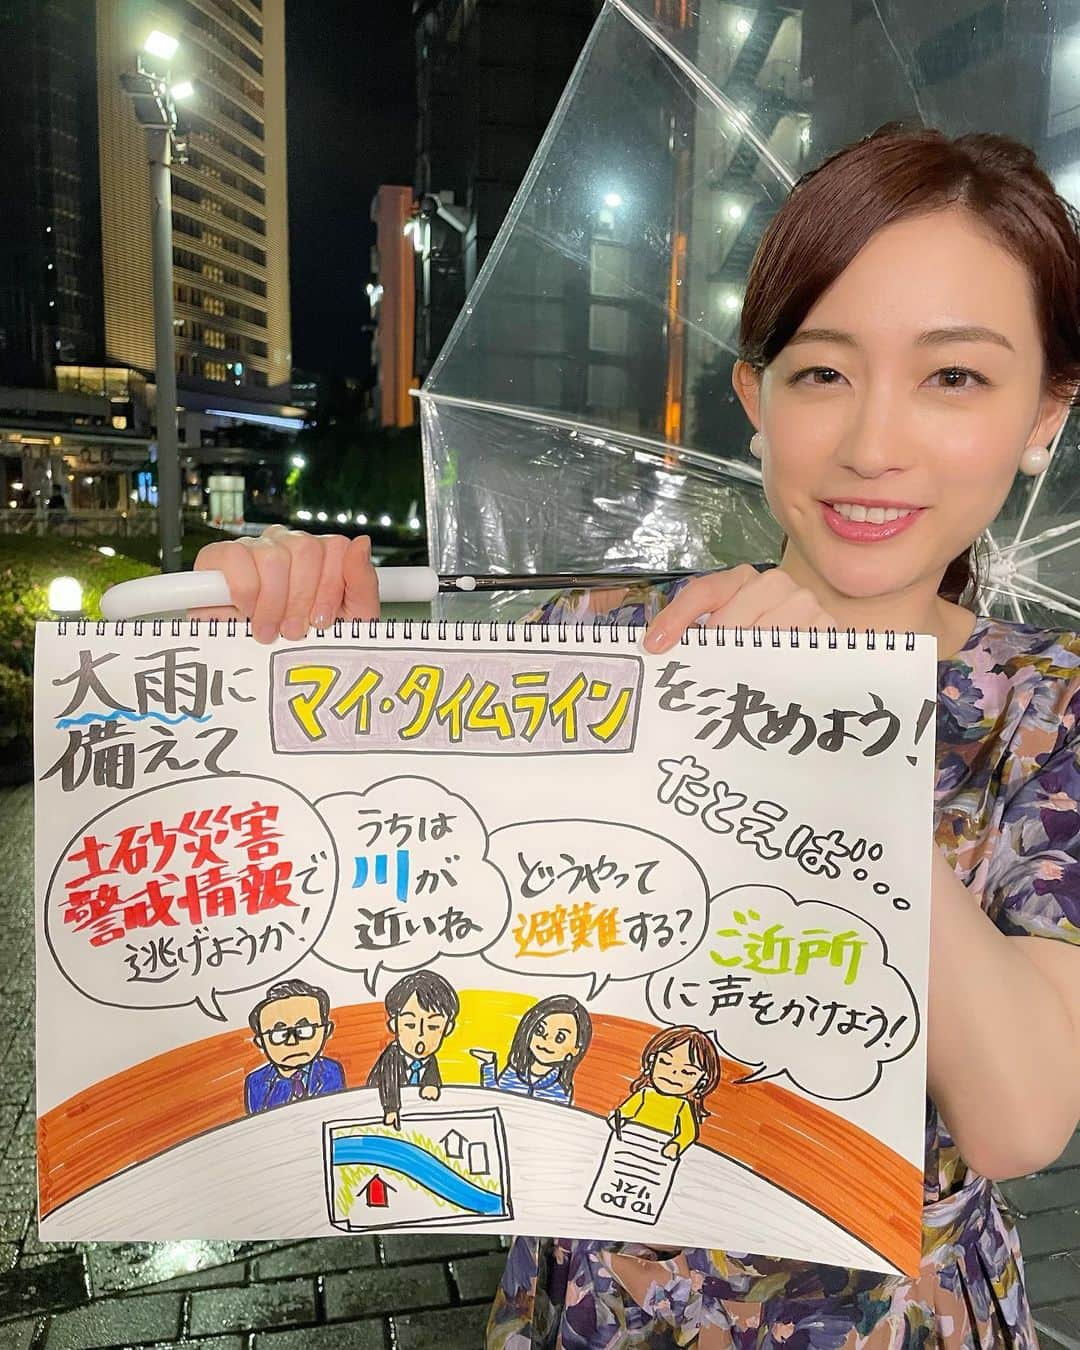 大雨に
備えて
マイ・タイムライン
を決めよう!
たとえば…
土砂災害
警戒情報で
逃げようか!
うちは
川が
近いね
どうやって
避難する?
ご近所
に声をかけよう!
TO DO
リスト